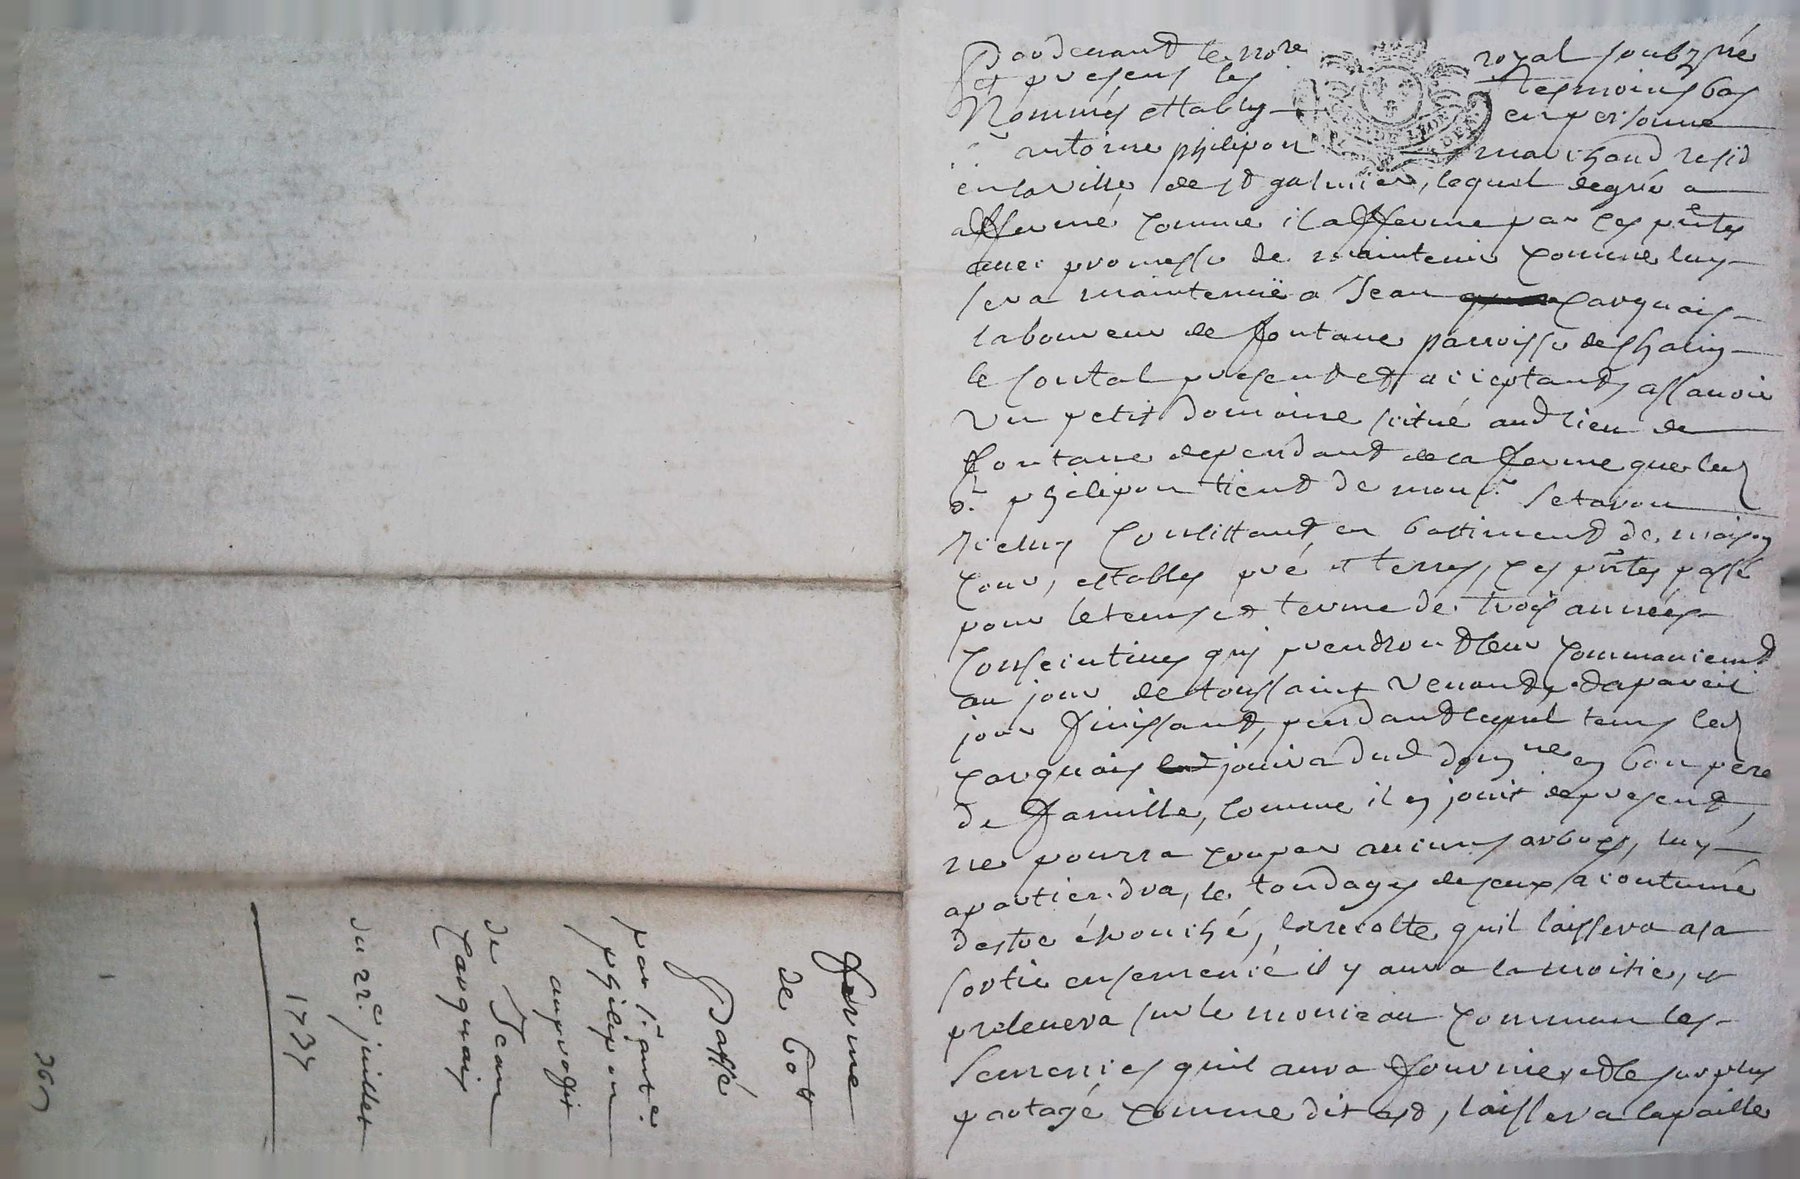 Pardevant le no.re royal soubzné
et presens les tesmoins bas
Nommés estably en personne
s.r antoine philipon marchand resid
en la ville de st galmier, lequel de gré a
affermé comme il afferme par ces p̃ntes
avec promesse de maintenir comme luy
sera maintenuë a Jean carquais
laboureur de fontane parroisse de chalin
le contal present et acceptant, assavoir
Un petit domaine scitué aud lieu de
fontane dependant de la ferme que led
s.r philipon tient de mons.r
icelluy consistant en battiment de maison
cour, estables pré et terres, ces p̃ntes passé
pour le tems et terme de trois années
consecutives qui prendront leur commancement
au jour de toussaint venant, et a pareil
jour finissant, pendant lequel tems led
carquais jouira dud dom.ne en bon pere
de famille, comme il en jouit a present,
ne pourra couper aucuns arbres, luy
apartiendra, le tondage de ceux acoutumé
destre, la recolte quil laissera a sa
sortie ensemencé il y aura la moitie, et
prelevera sur le monceau commun les
semences quil aura fournies et le surplus
partagé comme dit est, laissera la paille
ferme
de 60 #
Passé
par s.r ant.e
philipon
au proffit
de Jean
Carquais
du 22.e juillet
1737